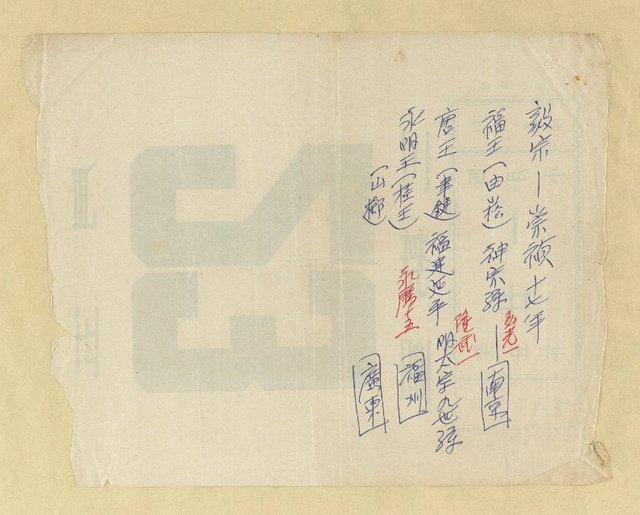 毅宗—崇禎十七年
福王(由崧)神宗孫—南京
弘光一
唐王(聿鍵)福建延平 明太宗九世孫
隆武一
福州
永明王(桂王)
(由榔)
永曆十五
廣東